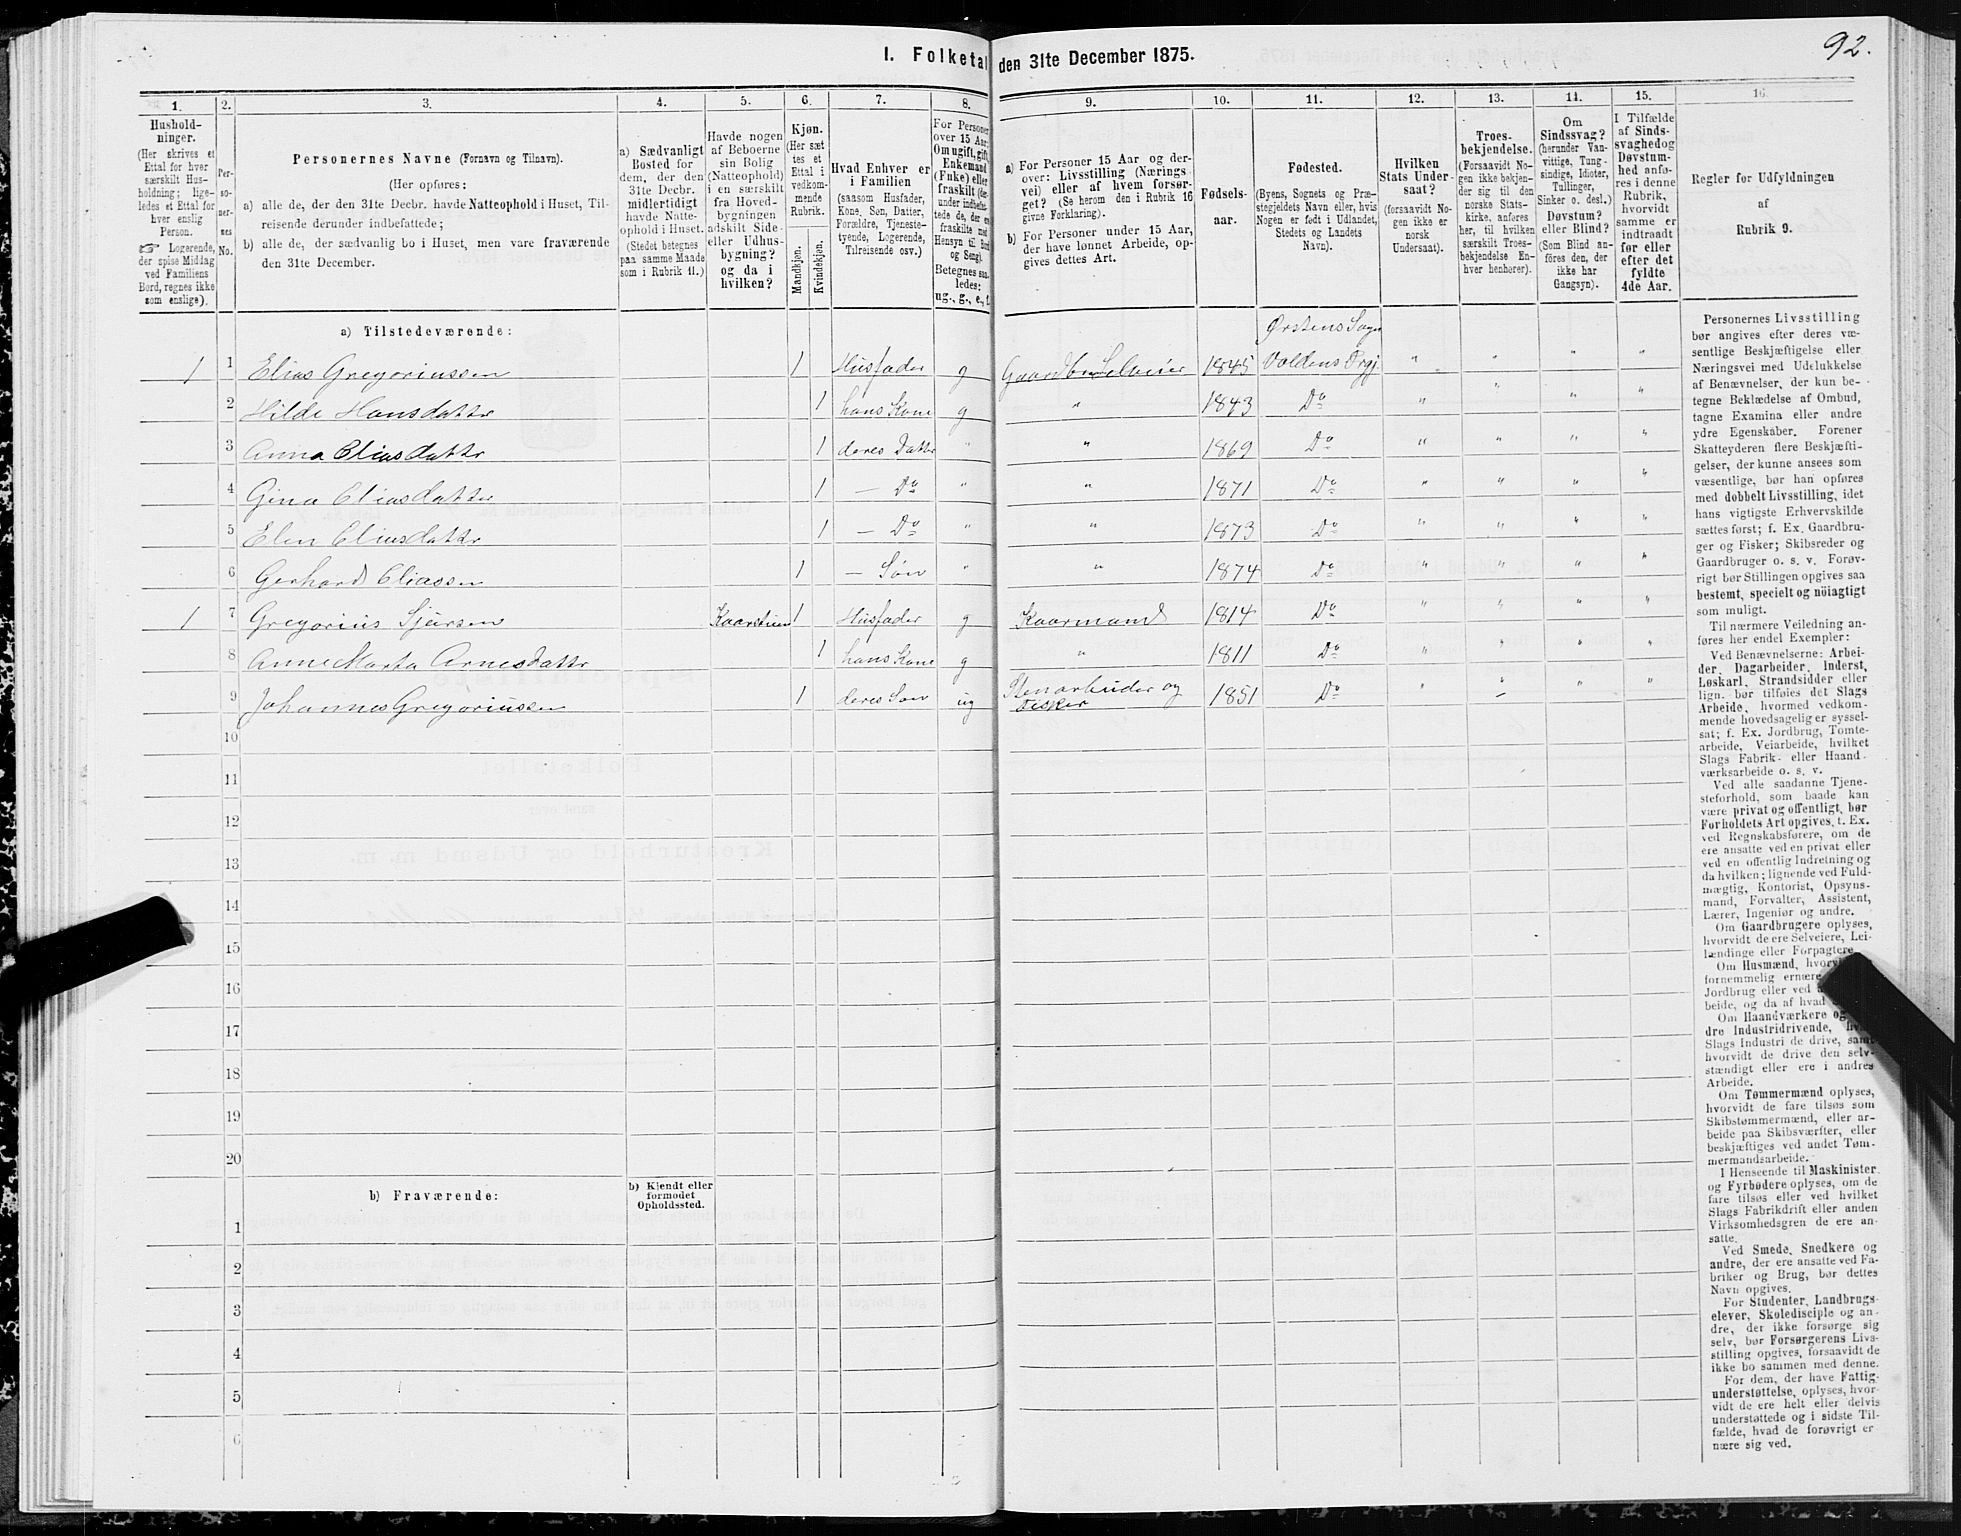 92.
I. Folketal den 31te December 1875.
1. 2. 3. 4. 5. 6. 7. 8. 9. 10. 11. 12. 13. 14. 15. 16.
Hushold-
ninger.
(Her skrives et
Ettal for hver
særskilt Hus-
holdning; lige-
ledes et Ettal for
hver enslig
Person.
☞ Logerende,
der spise Middag
ved Familiens
Bord, regnes ikke
som enslige).
Per-
so-
ner-
nes
No.
Personernes Navne (Fornavn og Tilnavn).
(Her opføres:
a) alle de, der den 31te Decbr. havde Natteophold i Huset, Til-
reisende derunder indbefattede;
b) alle de, der sædvanlig bo i Huset, men vare fraværende
den 31te December.
a) Sædvanligt
Bosted for
dem, der den
31te Decbr.
midlertidigt
havde Natte-
ophold i Huset.
(Stedet betegnes
paa samme Maade
som i Rubrik 11.)
Havde nogen
af Beboerne
sin Bolig
(Natteophold)
i en særskilt
fra Hoved-
bygningen
adskilt Side-
eller Udhus-
bygning?
og da i
hvilken?
Kjøn.
(Her sæt
tes et
Ettal i
vedkom-
mende
Rubrik.
Mandkjøn.
Kvindekjøn.
Hvad Enhver er
i Familien
(saasom Husfader,
Kone, Søn, Datter,
Forældre, Tjeneste-
tyende, Logerende,
Tilreisende osv.)
For Personer
over 15 Aar:
Om ugift, gift,
Enkemand
(Enke) eller
fraskilt (der-
under indbefat-
tede de, der ere
fraskilte med
Hensyn til Bord
og Seng).
Betegnes saa-
ledes:
ug., g., e., f.
a) For Personer 15 Aar og der-
over: Livsstilling (Nærings
vei) eller af hvem forsør-
get? (Se herom den i Rubrik 16
givne Forklaring).
b) For Personer under 15 Aar,
der have lønnet Arbeide, op-
gives dettes Art.
Fødsels-
aar.
Fødested.
(Byens, Sognets og Præ-
stegjeldets Navn eller, hvis
Nogen er født i Udlandet,
Stedets og Landets
Navn).
Hvilken
Stats Under-
saat?
(forsaavidt No-
gen ikke er
norsk
Undersaat).
Troes-
bekjendelse.
(Forsaavidt No-
gen ikke bekjen-
der sig til den
norske Stats-
kirke, anføres
her, til hvilken
særskilt Troes-
bekjendelse En-
hver henhører).
Om
Sindssvag?
(herunder Van-
vittige, Tung-
sindige, Idioter,
Tullinger,
Sinker o. desl.)
Døvstum?
eller Blind?
(Som Blind an-
föres den, der
ikke har
Gangsyn).
I Tilfælde
af Sinds-
svaghedog
Døvstum-
hed anfø-
res i denne
Rubrik,
hvorvidt
samme er
indtraadt
før eller
efter det
fyldte
4de Aar.
Regler for Udfyldningen
af
Rubrik 9.
a) Tilstedeværende:
Ørstens Sogn
1 1 Elias Gregoriussen 1 Husfader g Gaardbr Selveier 1845 Voldens Prgj. " " " "
2 Hilde Hansdatter 1 hans Kone g " 1843 Do " " " "
3 Anna Eliasdatter 1 deres Datter " " 1869 Do " " " "
4 Gina Eliasdatter 1 — Do " " 1871 Do " " " "
5 Elen Eliasdatter 1 — Do " " 1873 Do " " " "
6 Gerhard Eliassen 1 — Søn " " 1874 Do " " " "
1 7 Gregorius Sjursen Kaarstuen 1 Husfader g Kaarmand 1814 Do " " " "
8 Anne Marta Arnesdatter 1 hans Kone g " 1811 Do " " " "
9 Johannes Gregoriussen 1 deres Søn ug Stenarbeider og Fisker 1851 Do " " " "
10
11
12
13
14
15
16
17
18
19
20
b) Fraværende:
b) Kjendt eller
formodet
Opholdssted.
1
2
3
4
5
6
Personernes Livsstilling
bør angives efter deres væ-
sentlige Beskjæftigelse eller
Næringsvei med Udelukkelse
af Benævnelser, der kun be-
tegne Beklædelse af Ombud,
tagne Examina eller andre
ydre Egenskaber. Forener
Skatteyderen flere Beskjæfti-
gelser, der kunne ansees som
væsentlige, bør han opføres
med dobbelt Livsstilling, idet
hans vigtigste Erhvervskilde
sættes først; f. Ex. Gaardbru-
ger og Fisker; Skibsreder og
Gaardbruger o. s. v. Forøv-
rigt bør Stillingen opgives saa
bestemt, specielt og nöiagtigt
som muligt.
Til nærmere Veiledning an-
føres her endel Exempler:
Ved Benævnelserne: Arbei-
der, Dagarbeider, Inderst,
Løskarl, Strandsidder eller
lign. bør tilføies det Slags
Arbeide, hvormed vedkom-
mende hovedsagelig er syssel-
sat; f. Ex. Jordbrug, Tomte-
arbeide, Veiarbeide, hvilket
Slags Fabrik- eller Haand-
værksarbeide o. s. v.
Ved alle saadanne Tjene-
steforhold, som baade kan
være privat og offentligt, bør
Forholdets Art opgives, t. Ex.
ved Regnskabsførere, om de
ere ansatte ved en privat eller
ved en offentlig Indretning og
da hvilken; lignende ved Fuld-
mægtig, Kontorist, Opsyns-
mand, Forvalter, Assistent,
Lærer, Ingeniør og andre.
Om Gaardbrugere oplyses,
hvorvidt de ere Selveiere, Lei-
lændinge eller Forpagtere.
Om Husmænd,
fornemmelig ernære
Jordbrug eller ved
beide, og da af hvad
Om Haandværkere og
dre Industridrivende,
Slags Industri de drive, samt
hvorvidt de drive den selv-
stændigt eller ere i andres
Arbeide.
Om Tømmermænd oplyses,
hvorvidt de fare tilsøs som
Skibstømmermænd, eller ar-
beide paa Skibsværfter, eller
beskjæftiges ved andet Tøm-
mermandsarbeide.
I Henseende til Maskinister
og Fyrbødere oplyses, om de
fare tilsøs eller ved hvilket
Slags Fabrikdrift eller anden
Virksomhedsgren de ere an-
satte.
Ved Smede, Snedkere og
andre, der ere ansatte ved Fa-
briker og Brug, bør dettes
Navn opgives.
For Studenter, Landbrugs-
elever, Skoledisciple og an-
dre, der ikke forsørge sig
selv, bør Forsørgerens Livs-
stilling opgives, forsaavidt de
ikke bo sammen med denne.
For dem, der have Fattig-
understøttelse, oplyses, hvor-
vidt de ere helt eller delvis
understøttede og i sidste Til-
fælde, hvad de forøvrigt er
nære sig ved.